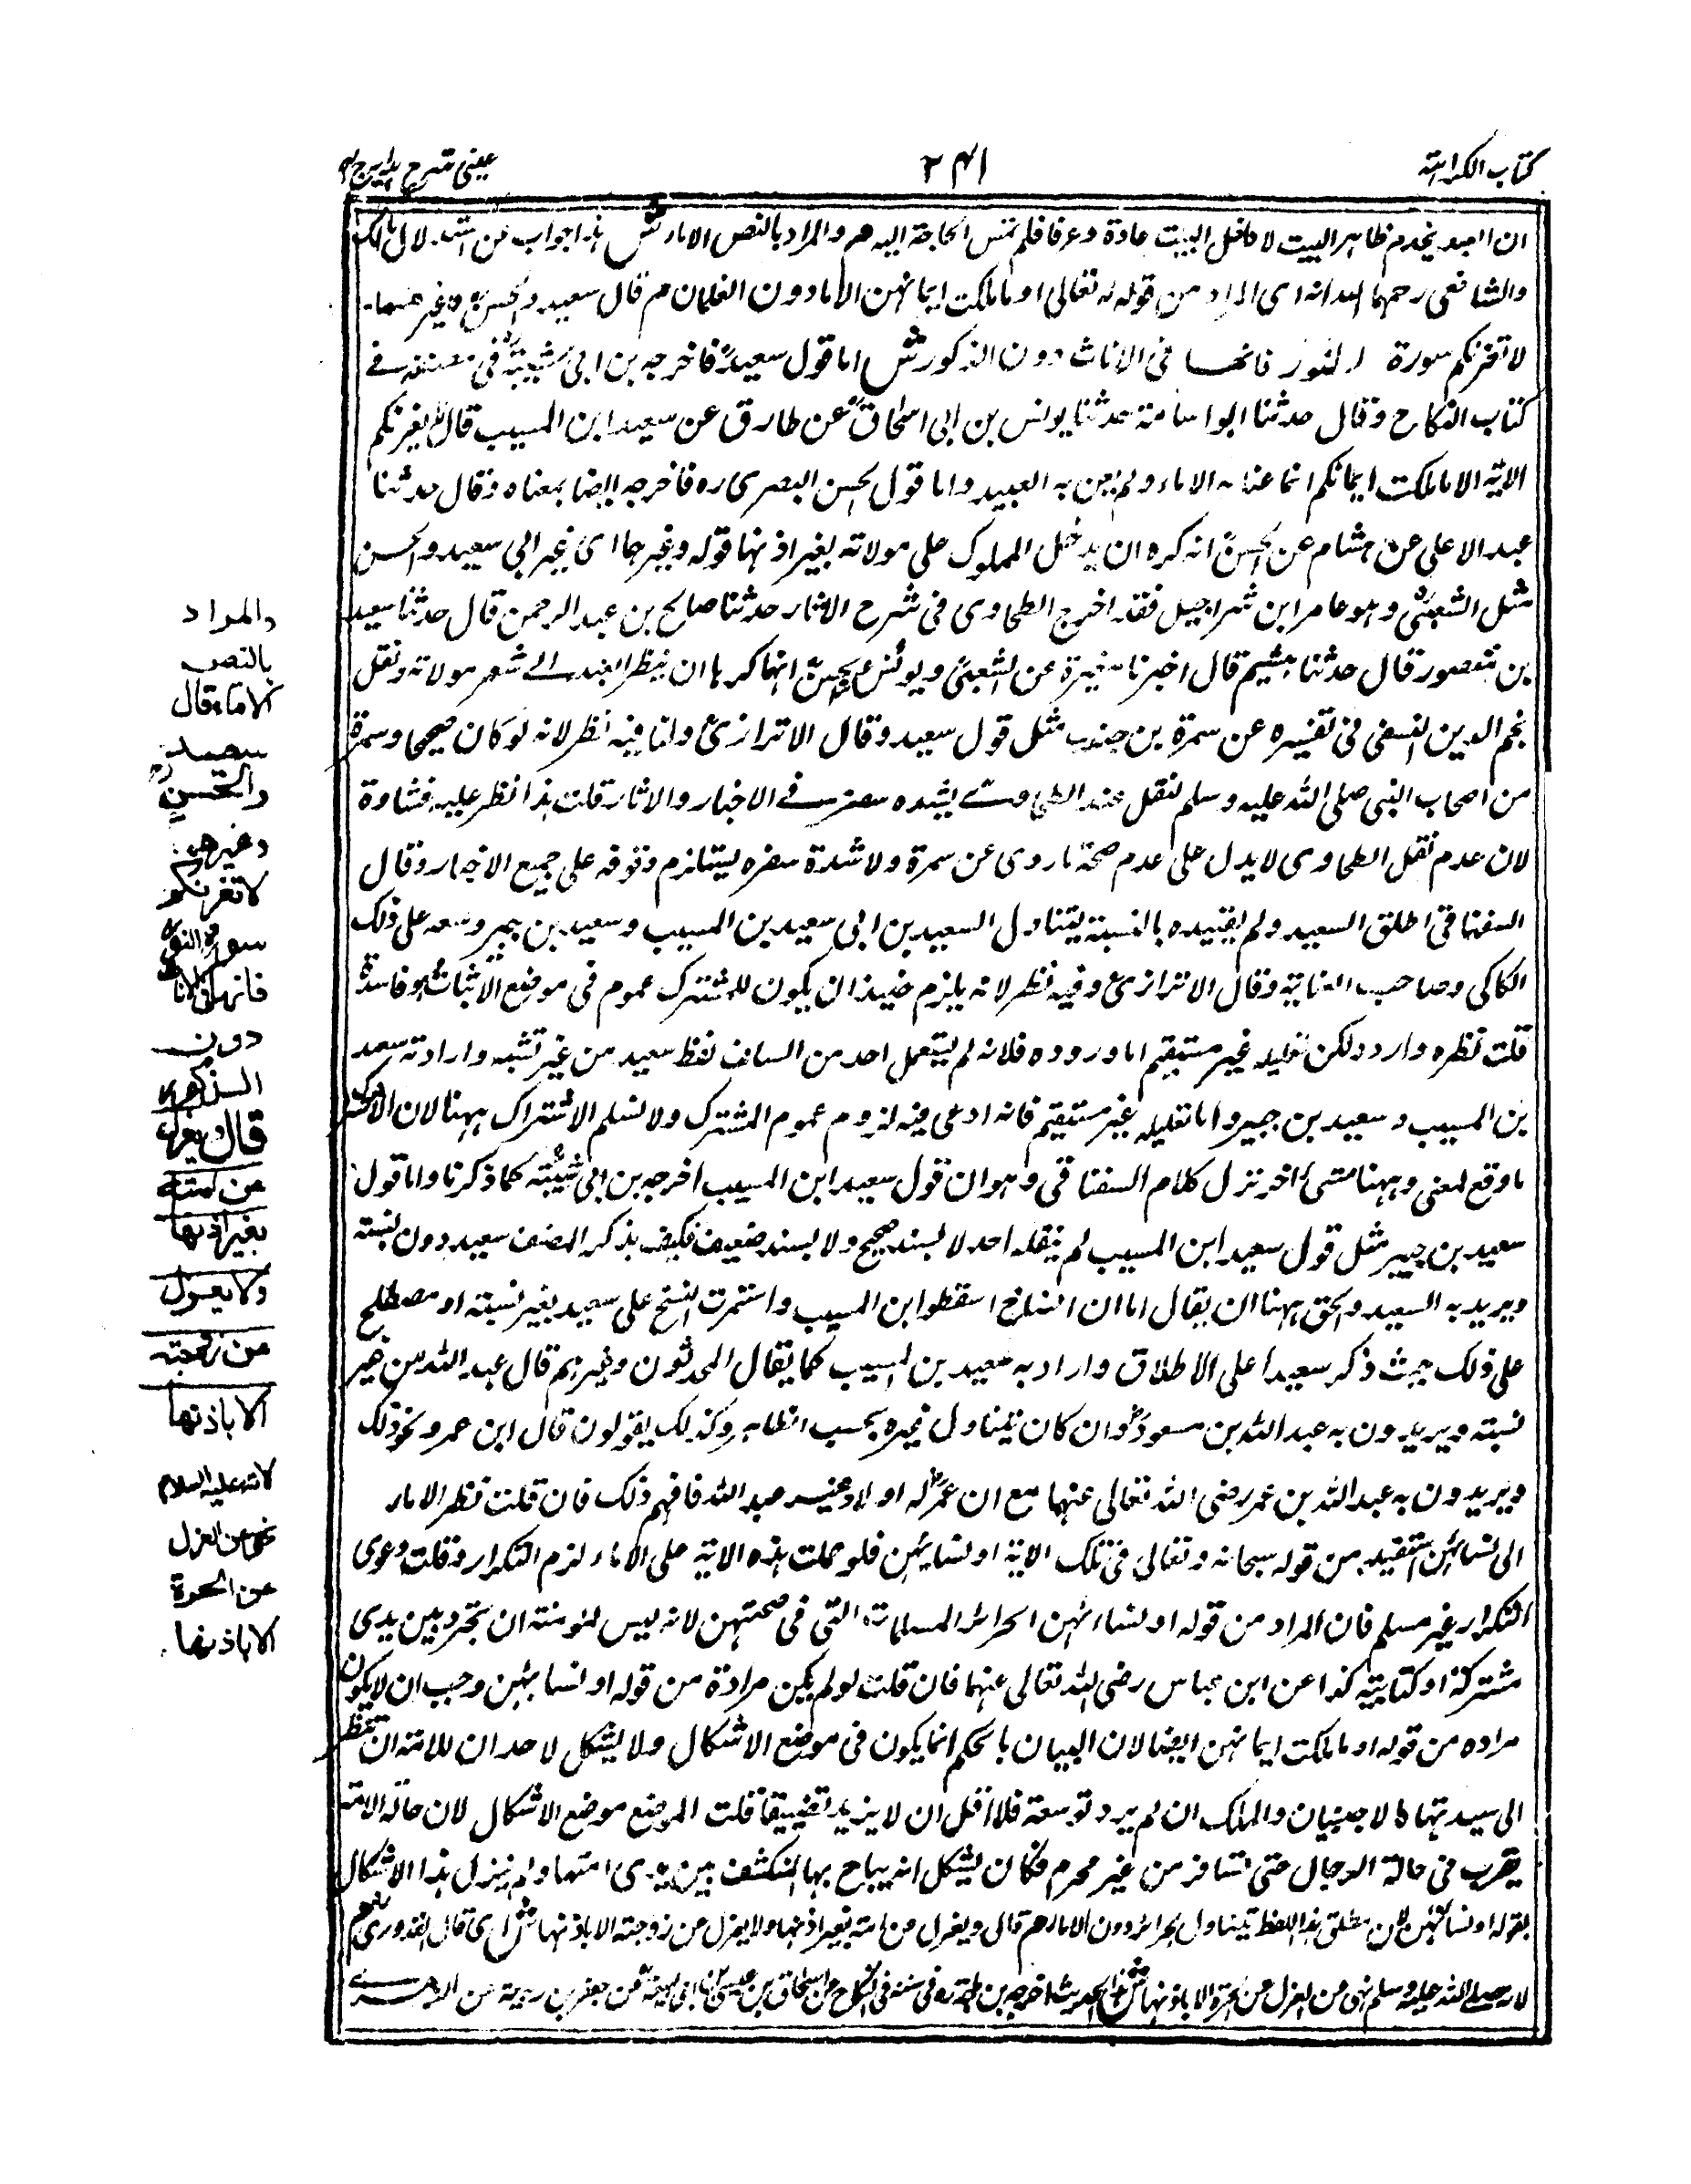 كتاب الكراهية
٢٤١
عينى شرح هداية ج ٤
ان العبد يخدم ظاهر البيت لا داخل البيت عادة وعرفا فلم تمس الحاجة اليه م والمراد بالنص الاماء ش هذا جواب عن استدلال مالك
والشافعى رحمهما الله انه اى المراد من قوله تعالى او ما ملكت ايمانهن الاماء دون الغلمان م قال سعيد والحسن وغيرهما
لا تغرنكم سورة النور فانها فى الاناث دون الذكور ش اما قول سعيد فاخرجه بن ابى شيبة فى مصنفه فى
كتاب النكاح وقال حدثنا ابو اسامة حدثنا يونس بن ابى اسحاق عن طارق عن سعيد ابن المسيب قال لا يغرنكم
الاية الا ما ملكت ايمانكم انما عنى به الاماء ولم يعن به العبيد واما قول الحسن البصرى ره فاخرجه ايضا بمعناه وقال حدثنا
عبد الاعلى عن هشام عن الحسن انه كره ان يدخل المملوك على مولاته بغير اذنها قوله وغيرهما اى غير ابى سعيد والحسن
مثل الشعبى وهو عامر ابن شراحيل فقد اخرج الطحاوى فى شرح الاثار حدثنا صالح بن عبد الرحمن قال حدثنا سعيد
بن منصور قال حدثنا هشيم قال اخبرنا مغيرة عن الشعبى ويونس عن الحسن انهما كرها ان ينظر العبد الى شعر مولاته ونقل
نجم الدين النسفى فى تفسيره عن سمرة بن جندب مثل قول سعيد وقال الاترازى ولنا فيه نظر لانه لو كان صحيحا وسمرة
من اصحاب النبى صلى الله عليه وسلم لنقل عنه الطحاوى بشدة سعيه فى الاخبار والاثار قلت هذا نظر عليه غشاوة
لان عدم نقل الطحاوى لا يدل على عدم صحة ما روى عن سمرة ولا شدة سفره يستلزم وقوفه على جميع الاخبار وقال
السغناقى اطلق السعيد ولم يقيده بالنسبة ليتناول السعيدين ابى سعيد بن المسيب وسعيد بن جبير وتبعه على ذلك
الكاكى وصاحب العناية وقال الاترازى وفيه نظر لانه يلزم حينئذ ان يكون للمشترك عموم فى موضع الاثبات وهو فاسد
قلت نظره وارد ولكن تعليله غير مستقيم اما وروده فلانه لم يستعمل احد من السلف لفظ سعيد من غير نسبة وارادته سعيد
بن المسيب وسعيد بن جبير واما تعليله غير مستقيم فانه ادعى فيه لزوم عموم المشترك ولا نسلم الاشتراك ههنا لان المشترك
ما وقع لمعنى وههنا شىء اخر تنزل كلام السغناقى وهو ان قول سعيد ابن المسيب اخرجه بن ابى شيبة كما ذكرنا واما قول
سعيد بن جبير مثل قول سعيد ابن المسيب لم ينقله احد لا بسند صحيح ولا بسند ضعيف فكيف يذكر المصنف سعيد دون نسبته
ويريد به السعيد والحق ههنا ان يقال اما ان النساخ اسقطوا ابن المسيب واستمرت النسخ على سعيد بغير نسبته او مصطلح
على ذلك حيث ذكر سعيدا على الاطلاق واراد به سعيد بن المسيب كما يقال المحدثون وغيرهم قال عبد الله من غير
نسبته ويريدون به عبد الله بن مسعود وان كان يتناول غيره بحسب الظاهر وكذلك يقولون قال ابن عمر ونحو ذلك
ويريدون به عبد الله بن عمر رضى الله تعالى عنهما مع ان عمر له اولاد غير عبد الله فافهم ذلك فان قلت نظر الاماء
الى نسائهن استفيد من قوله سبحانه وتعالى فى تلك الاية او نسائهن فلو حملت هذه الاية على الاماء لزم التكرار قلت دعوى
التكرار غير مسلم فان المراد من قوله او نسائهن الحرائر المسلمات التى فى صحبتهن لانه ليس لمؤمنة ان تتجرد بين يدى
مشركة او كتابية كذا عن ابن عباس رضى الله تعالى عنهما فان قلت لو لم يكن مرادة من قوله او نسائهن وجب ان لا يكون
مراده من قوله او ما ملكت ايمانهن ايضا لان البيان بالحكم انما يكون فى موضع الاشكال ولا يشكل لاحد ان للامة ان تنظر
الى سيدتها كالاجنبيان والملك ان لم يرد توسعة فلا اقل ان لا يزيد تضييقا قلت الموضع موضع الاشكال لان حالة الامة
يقرب فى حالة الرجال حتى تسافر من غير محرم فكان يشكل انه يباح لها التكشف بين يدى امتها ولم يزل هذا الاشكال
بقوله او نسائهن لان مطلق هذا اللفظ يتناول الحرائر دون الاماء م قال ويعزل عن امته بغير اذنها ولا يعزل عن زوجته الا باذنها ش اى قال القدورى م
لانه صلى الله عليه وسلم نهى عن العزل عن الحرة الا باذنها ش هذا الحديث اخرجه بن ماجه فى سننه فى النكاح عن اسحاق بن عيسى ثنا ابن لهيعة عن جعفر بن ربيعة عن الزهرى
والمراد
بالنص
الاماء قال
سعيد
والحسن
وغيرهما
لا تغرنكم
سورة النور
فانها فى الاناث
دون
الذكور
قال ويعزل
عن امته
بغير اذنها
ولا يعزل
عن زوجته
الا باذنها
لانه عليه السلام
نهى عن العزل
عن الحرة
الا باذنها